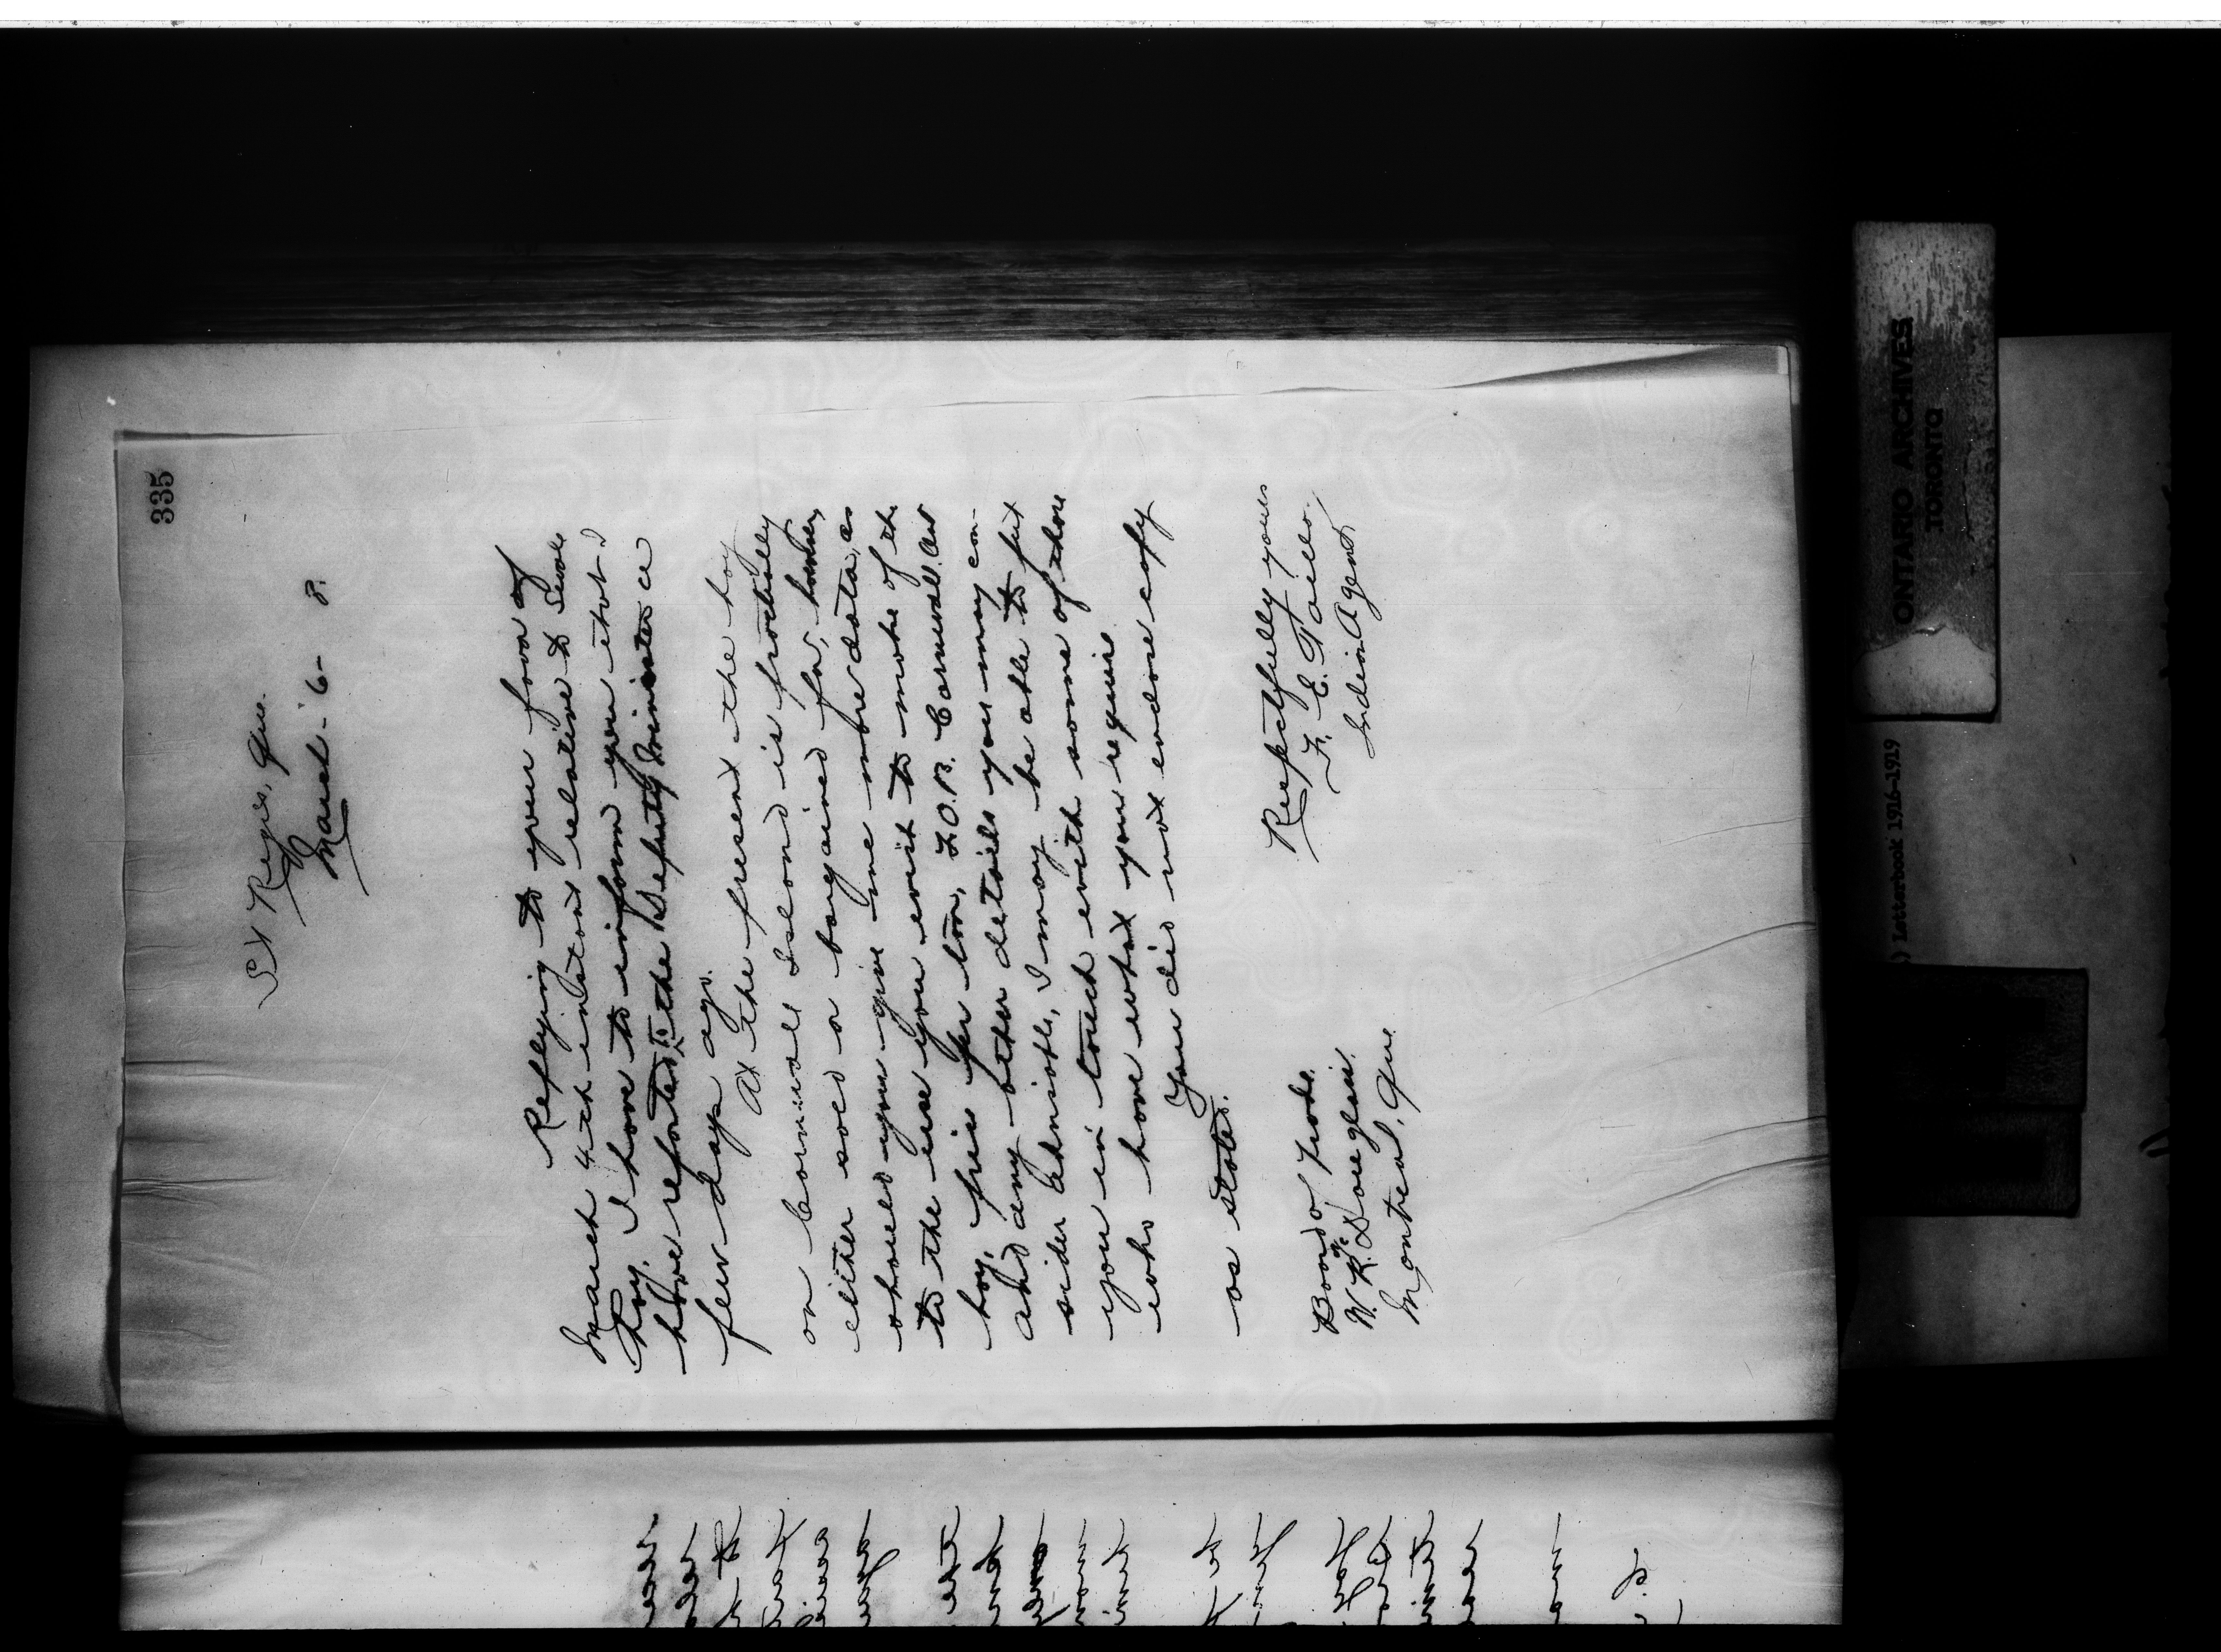 335
St Regis, Que.
March - 6 - 8.
Replying to your favor of
March 4th instant relative to Swale
hay, I have to inform you that I
have reported to the Deputy Minister a
few days ago.
At the present the hay
on Cornwall Island is practically
either sold or bargained for, however,
should you give me more data, as
to the use you wish to make of the
hay, price per ton, F.O.B. Cornwall, Ont
and any other details you may con-
sider advisable, I may be able to put
you in touch with some of those
who have what you require.
You did not enclose copy
as stated.
Respectfully yours
F. E. Taillo
Indian Agent
Board of Trade.
W. R. Douglas
Montreal, Que.
ONTARIO ARCHIVES
TORONTO
) Letterbook 1916-1919